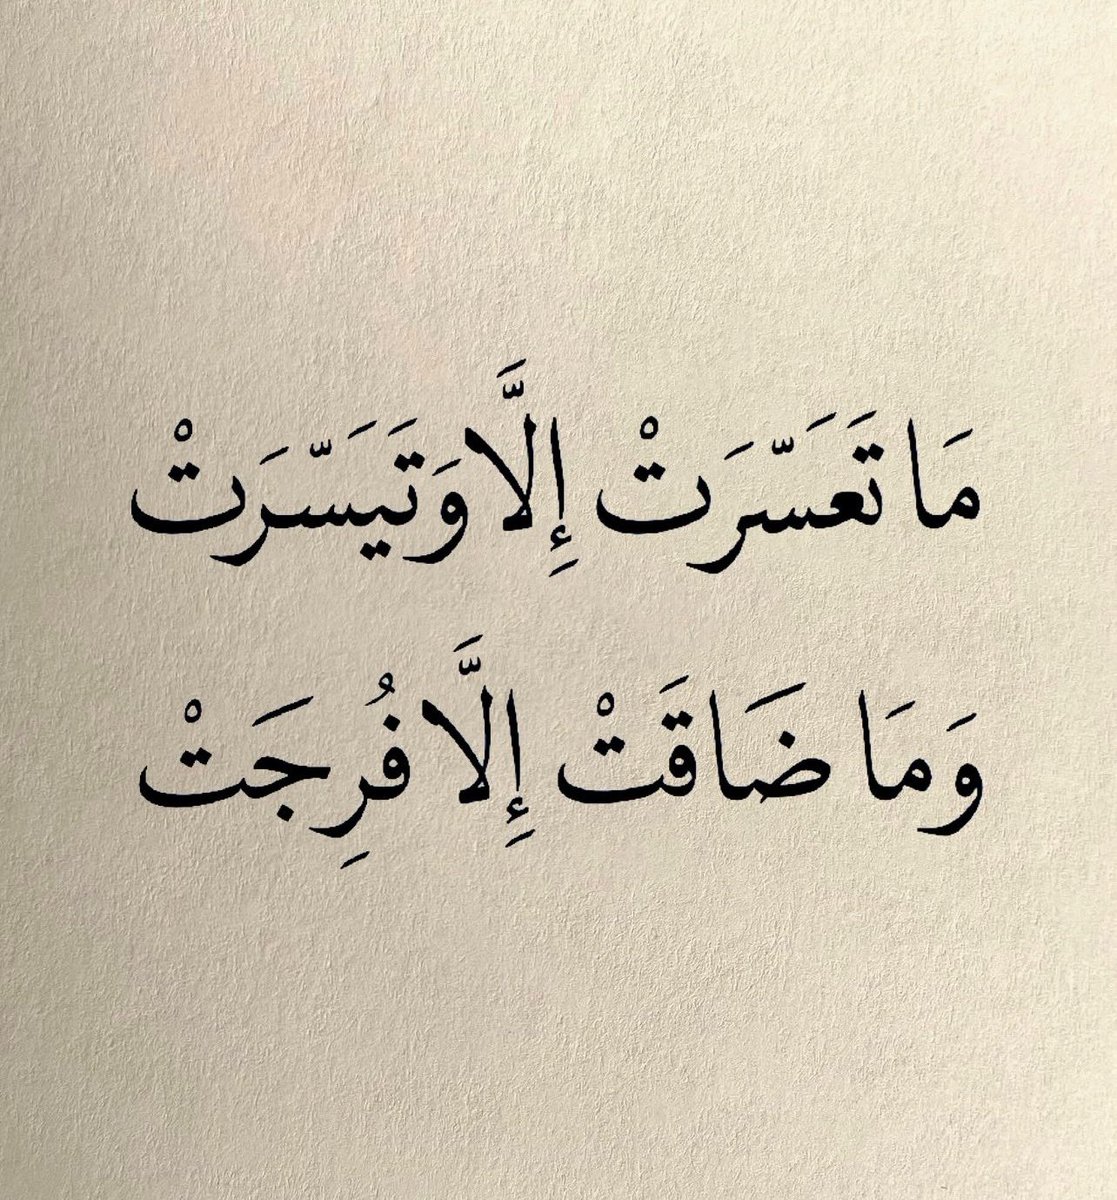 مَا تَعَسَّرَتْ إِلَّا وَتَيَسَّرَتْ
وَمَا ضَاقَتْ إِلَّا فُرِجَتْ